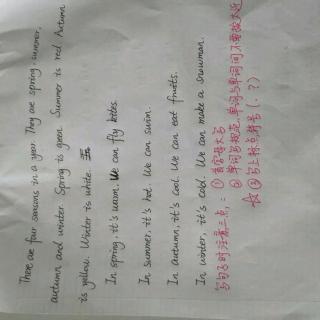 There are four seasons in a year. They are spring, summer,
autumn and winter. Spring is green. Summer is red. Autumn
is yellow. Winter is white.
In spring, it's warm. We can fly kites.
In summer, it's hot. We can swim.
In autumn, it's cool. We can eat fruits.
In winter, it's cold. We can make a snowman.
写句子时注意三点：① 首字母大写
② 单词要规范，单词与单词间不要故大近
③ 句上标点符号（. ？）